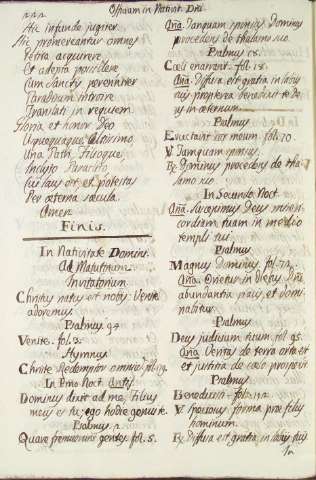 Officium in Nativit. Dni
Hic infunde jugiter
Hic promereantur omnes
Petita acquirere
Et adepta possidere
Cum Sanctis perenniter
Paradisum introire
Translati in requiem
Gloria et honor Deo
Usquequaque altissimo
Una Patri, Filioque,
Inclyto Paraclito,
Cui laus est, et potestas
Per æterna sæcula.
Amen
Finis.
In Nativitate Domini.
Ad Matutinum
Invitatorium
Christus natus est nobis: Venite
adoremus.
Psalmus 94
Venite. fol. 2.
Hymnus
Christe Redemptor omnium fol. 19.
In Pmo Noct. Anti.
Dominus dixit ad me, Filius
meus es tu; ego hodie genui te.
Psalmus 2
Quare fremuerunt gentes fol. 5.
Ana. Tanquam sponsus Dominus
procedens de thalamo suo.
Psalmus 18.
Cœli enarrant. fol. 18.
Ana. Diffusa est gratia in labijs
tuis propterea benedixit te De
us in æternum.
Psalmus
Eructavit cor meum fol. 70.
V Tanquam sponsus.
Re Dominus procedens de tha
lamo suo
In Secundo Noct.
Ana. Suscepimus Deus miseri-
cordiam tuam in medio
templi tui.
Psalmus
Magnus Dominus. fol. 72.
Ana. Orietur in diebus Dni
abundantia pacis, et domi-
nabitur.
Psalmus
Deus judicium tuum fol. 95.
Ana. Veritas de terra orta est
et justitia de cœlo prospexit.
Psalmus
Benedixisti. fol. 112
V Speciosus forma præ filijs
hominum.
Re Diffusa est gratia in labijs tuis
In